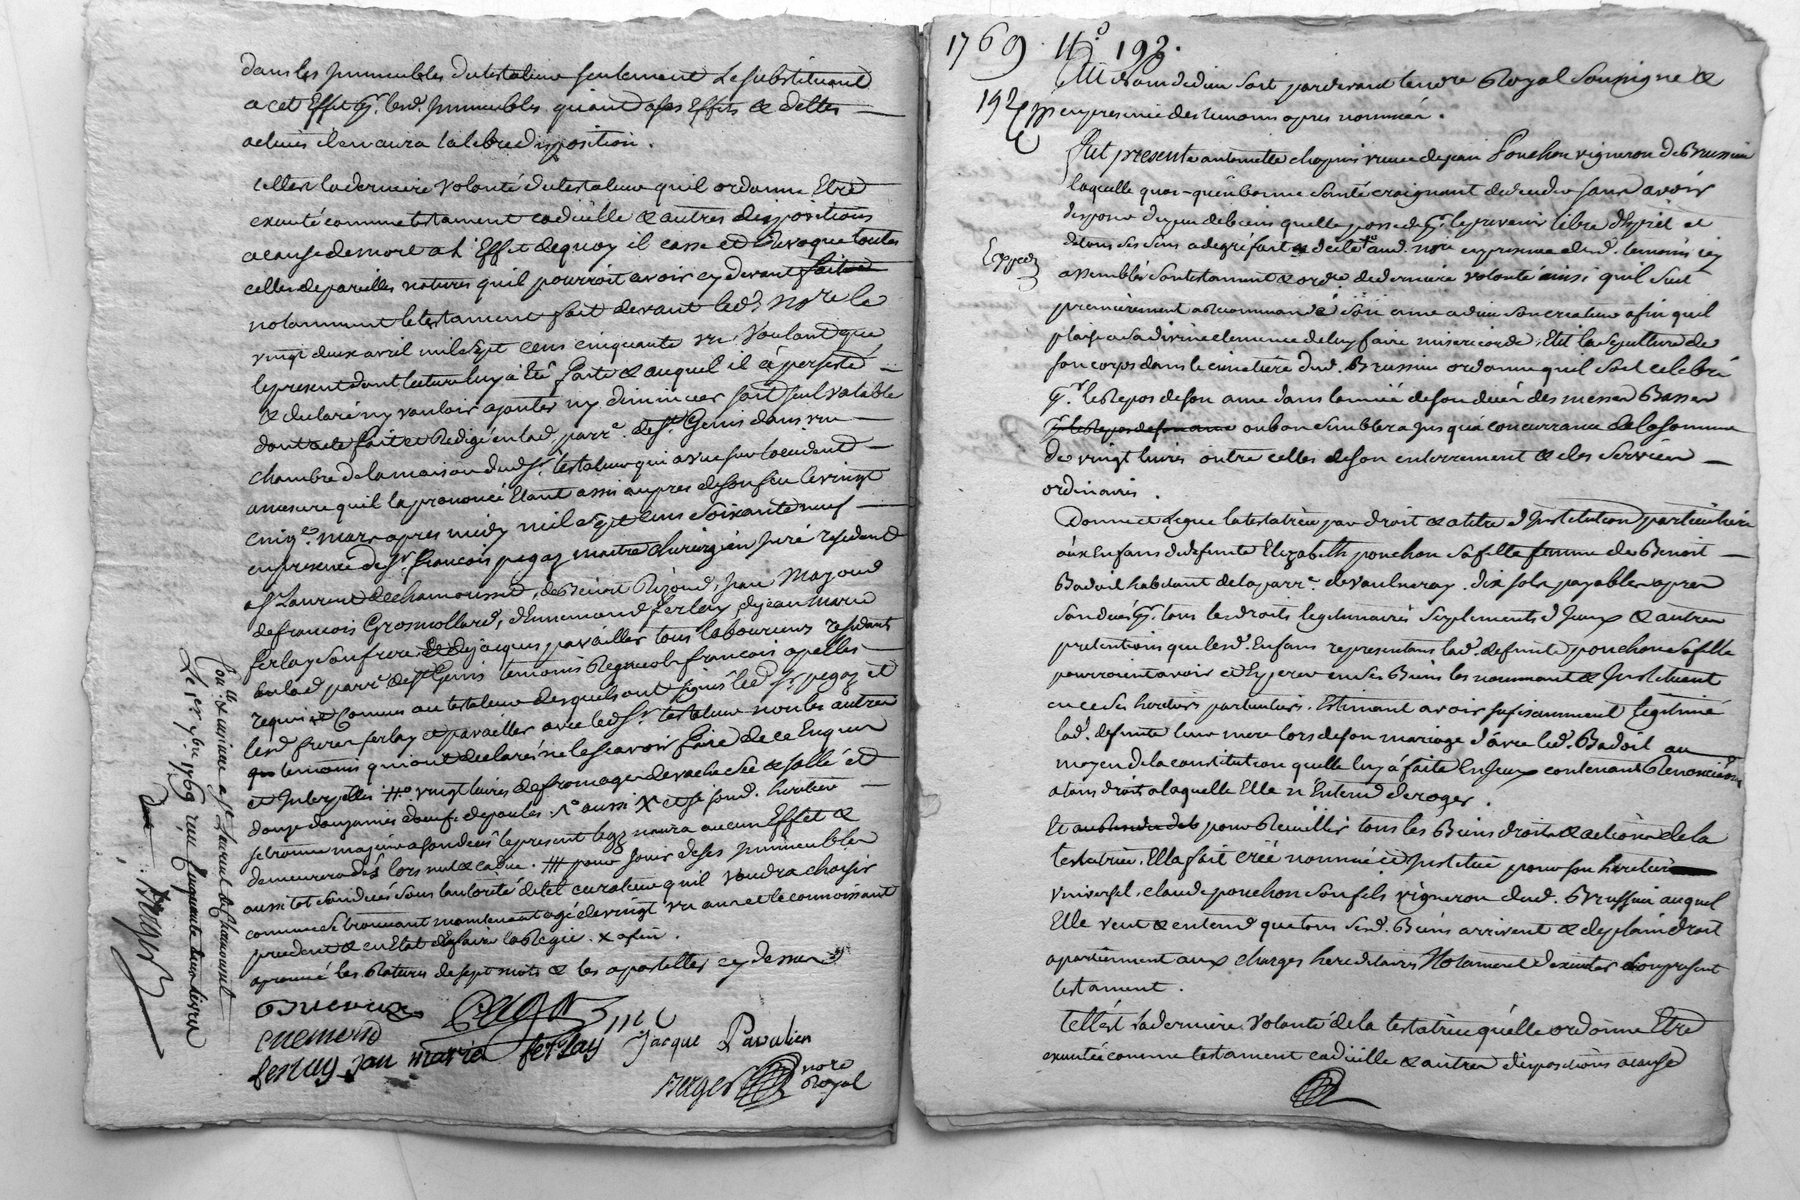 dans les Immeubles du testateur seulement le substituant
a cet Effet pr. lesd. Immeubles quand a ses Effets & dettes
actives il en aura la libre disposition.
telle est la derniere volonté du testateur quil ordonne Etre
executé comme testament codicille & autres dispositions
a cause de mort a l'Effet de quoy il casse et Revoque toutes
celles de pareilles natures quil pourroit avoir cy devant faites
notamment le testament fait devant led. nore le
vingt deux avril mil sept cens cinquante un voulant que
le present dont lecture luy a été faite & auquel il a persisté
& declaré ny vouloir ajouter ny diminuer soit seul valable
dont acte fait et Redigé en lad. parr.e de St Genis dans une
chambre de la maison dud. sr. testateur qui a vue sur loccident
a mesure quil la prononcé Etant assis aupres de son feu le vingt
cinq.e mars apres midy mil sept cens soixante neuf
en presence de sr. françois pegaz maitre chirurgien juré residend
a St Laurent de chamousset, de Benoit Rijoud, Jean Mazoud
de françois Grosmollard, d'Ennemond ferlay, de jean marie
ferlay son frere de jacques pavailler tous laboureurs residants
en lad. parr.e de St Genis temoins Requis & françois apelles
requis & Connus au testateur desquels ont signé led. sr. pegaz et
lesd. freres ferlay et pavailler avec led. sr. testateur non les autres
temoins qui ont declaré ne le scavoir faire de ce Enquis
et Interpellés # vingt livres de fromage de vache sec & sallé et
douze douzaines d'oeufs de poules. aussi X et se sond. heritier
se trouve majeur a son decès le present legz naura aucun Effet &
demeurera dès lors nul & cadue. ### pour jouir de ses Immeubles
aussitot son decés sous lautorité de tel curateur quil voudra choisir
comme se trouvant maintenant agé de vingt un ans et le connoissant
prudent & en Etat den faire la Regie. x afin.
aprouvé les Ratures de sept mots & les apostilles cy dessus
pegaz
ennemond
ferlay jan marie ferlay Jacque Pavalier
nore
Royal
Con.lle & insinué a St Laurent de Chamousset
Le 1er 7bre 1769 reçu
1769. # 192.
Au Nom de dieu soit pardevant le nore Royal soussigné &
192 en presence des temoins apres nommés.
fut presente antoinette chapuis veuve de jean Ponchon vigneron de Brussieu
laquelle quoi-qu'en bonne santé craignant de deceder sans avoir
disposé du peu de biens quelle possede pr. le present libre d'Esprit et
de tous ses sens a degré fait & dicté aud. nore en presence desd. temoins icy
Exped
assemblés son testament & ordce de derniere volonté ainsi quil suit
premierement a Recommandé son ame a dieu son createur afin quil
plaise a sa divine clemence de luy faire misericorde, Elit la sepulture de
son corps dans le cimetiere dud. Brussieu ordonne quil soit celebré
pr. le Repos de son ame dans l'année de son decès des messes Basses
pr. le Repos de son ame ou bon semblera jusqu'a concurrance de la somme
de vingt livres outre celles de son enterrement & des services
ordinaires.
Donne et Legue la testatrice par droit & a titre d'Institution particuliere
aux Enfans de defunte Elizabeth ponchon sa fille femme de Benoit
Badoil habitant de la parr.e de vaulneray. dix sols payables apres
son deces pr. tous les droits legitimaires suplements d'Iceux & autres
pretentions que lesd. Enfans representans lad. defunte ponchon sa fille
pourroient avoir et Esperer en ses Biens les nommant & Instituant
en ce ses heritiers particuliers. Estimant avoir sufisamment Legitimé
lad. defunte leur mere lors de son mariage d'avec led. Badoil au
moyen de la constitution quelle luy a faite En Iceux contenant Renonciation
a tous droits a laquelle Elle n'Entend deroger.
Et pour Recuillir tous les Biens droits & actions de la
testatrice. Ella fait créé nommé et Institué pour son heritier
universel, claude ponchon son fils vigneron dud. Brussieu auquel
Elle veut & entend que tous sesd. Biens arrivent & de plein droit
apartiennent aux charges hereditaires Notament d'executer son present
testament.
telle est sa derniere volonté de la testatrice qu'elle ordonne Etre
executée comme testament codicille & autres dispositions a cause